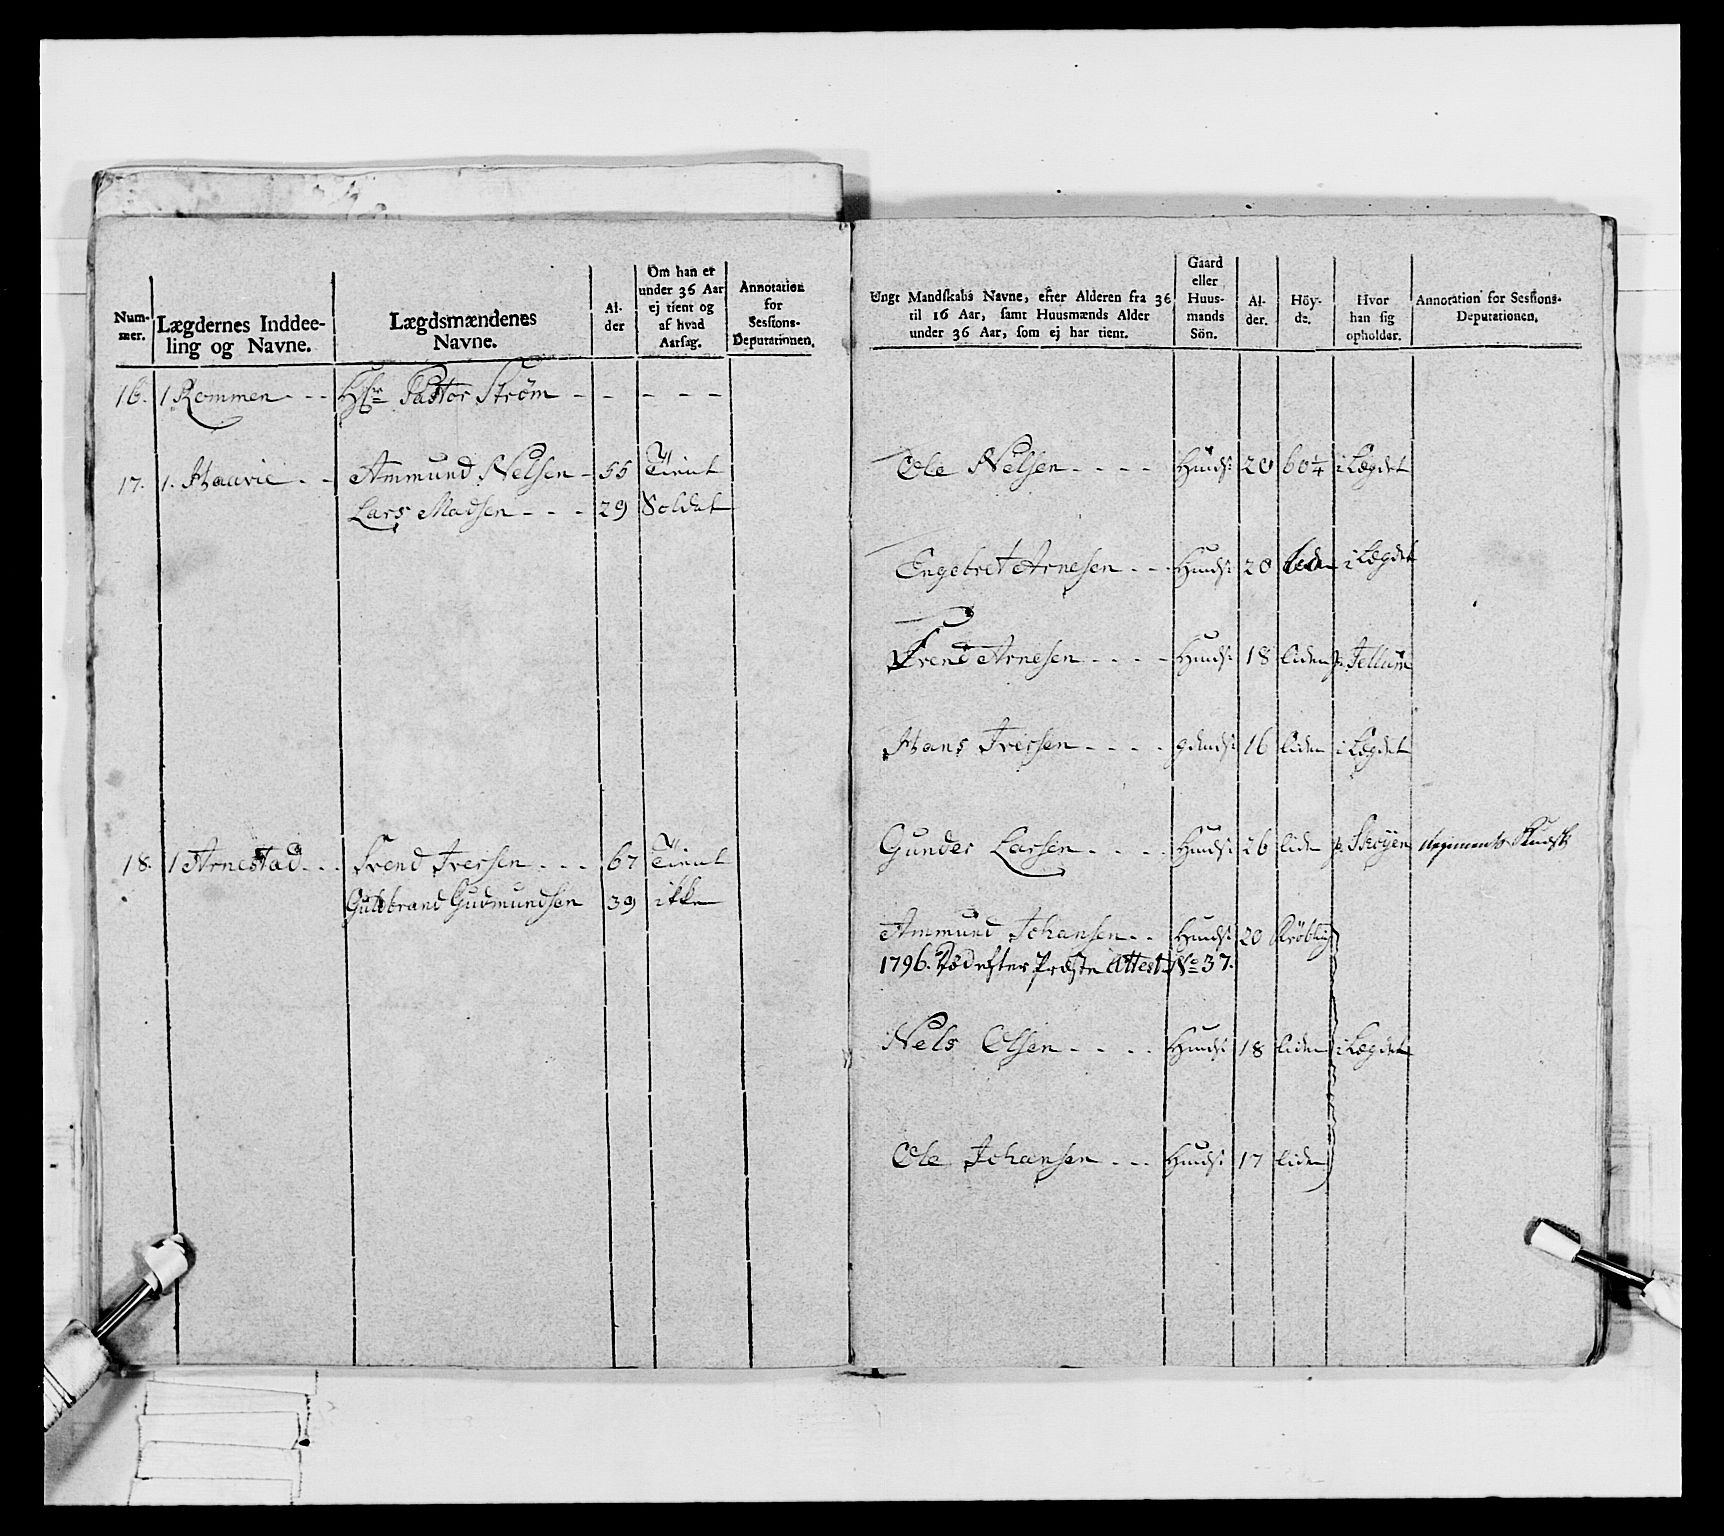 Num-
mer.
Lægdernes Inddee-
ling og Navne.
Lægdsmændenes
Navne.
Al-
der
Om han er
under 36 Aar
ej tient og
af hvad
Aarsag.
Annotation
for
Sessions-
Deputationen.
16. 1 Rommen - - Hr Pastor Strøm - - - - -
17. 1. Haavie - - Ammund Nelsen - 55 Tient
Lars Madsen - - - 29 Soldat
18. 1 Arnestad - - Trend Iversen - - - 67 Tient
Guldbrand Gudmundsen 39 ikke
Ungt Mandskabs Navne, efter Alderen fra 36
til 16 Aar, samt Huusmænds Alder
under 36 Aar, som ej har tient.
Gaard
eller
Huus-
mands
Sön.
Al-
der.
Höy-
de.
Hvor
han sig
opholder.
Annotation for Sessions-
Deputationen.
Ole Nelsen - - - - Huuds: 20 60 1/4 i Lægdet
Engebret Arnesen - - Huuds: 20 liden i Lægdet
Trend Arnesen - - - - Huuds: 18 liden p. Tellum
Hans Iversen - - - - 16 liden i Lægdet
Gunder Larsen - - - - Huuds: 26 liden p. Skøyen Regiments
Ammund Johansen - - Huuds: 20 Krøbling
1796. Død efter Præste Attest No 37.
Nels Olsen - - - - Huuds: 18 liden i Lægdet
Ole Johansen - - - Huuds: 17 liden